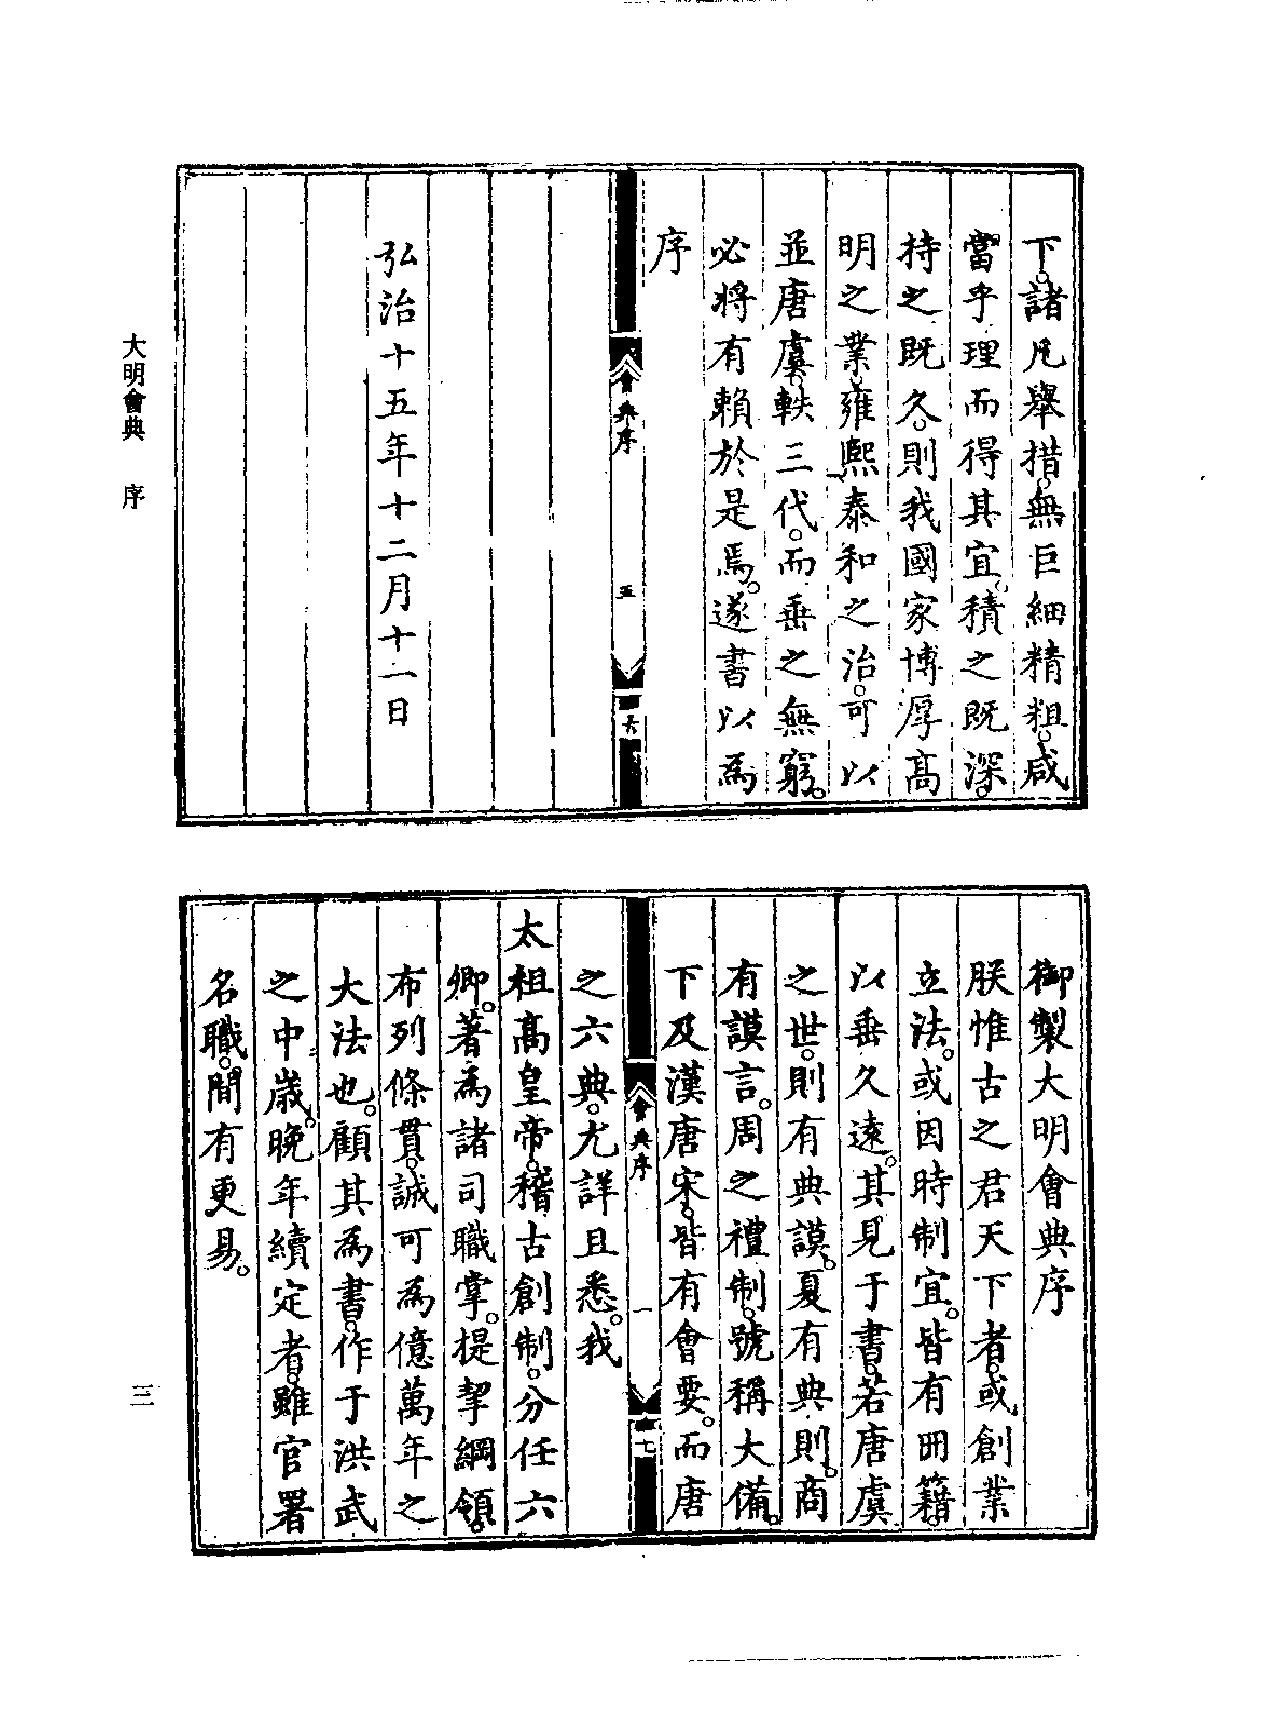 下。諸凡舉措。無巨細精粗。咸
當乎理而得其宜。積之既深。
持之既久。則我國家博厚高
明之業。雍熙泰和之治。可以
並唐虞。軼三代。而垂之無窮。
必將有賴於是焉。遂書以為
序
會典序
五
六
弘治十五年十二月十一日
大明會典 序
御製大明會典序
朕惟古之君天下者。或創業
立法。或因時制宜。皆有冊籍。
以垂久遠。其見于書。若唐虞
之世。則有典謨。夏有典則。商
有謨言。周之禮制。號稱大備。
下及漢唐宋。皆有會要。而唐
會典序
一
七
之六典。尤詳且悉。我
太祖高皇帝。稽古創制。分任六
卿。著為諸司職掌。提挈綱領。
布列條貫。誠可為億萬年之
大法也。顧其為書。作于洪武
之中歲。晚年續定者。雖官署
名職。間有更易。
三